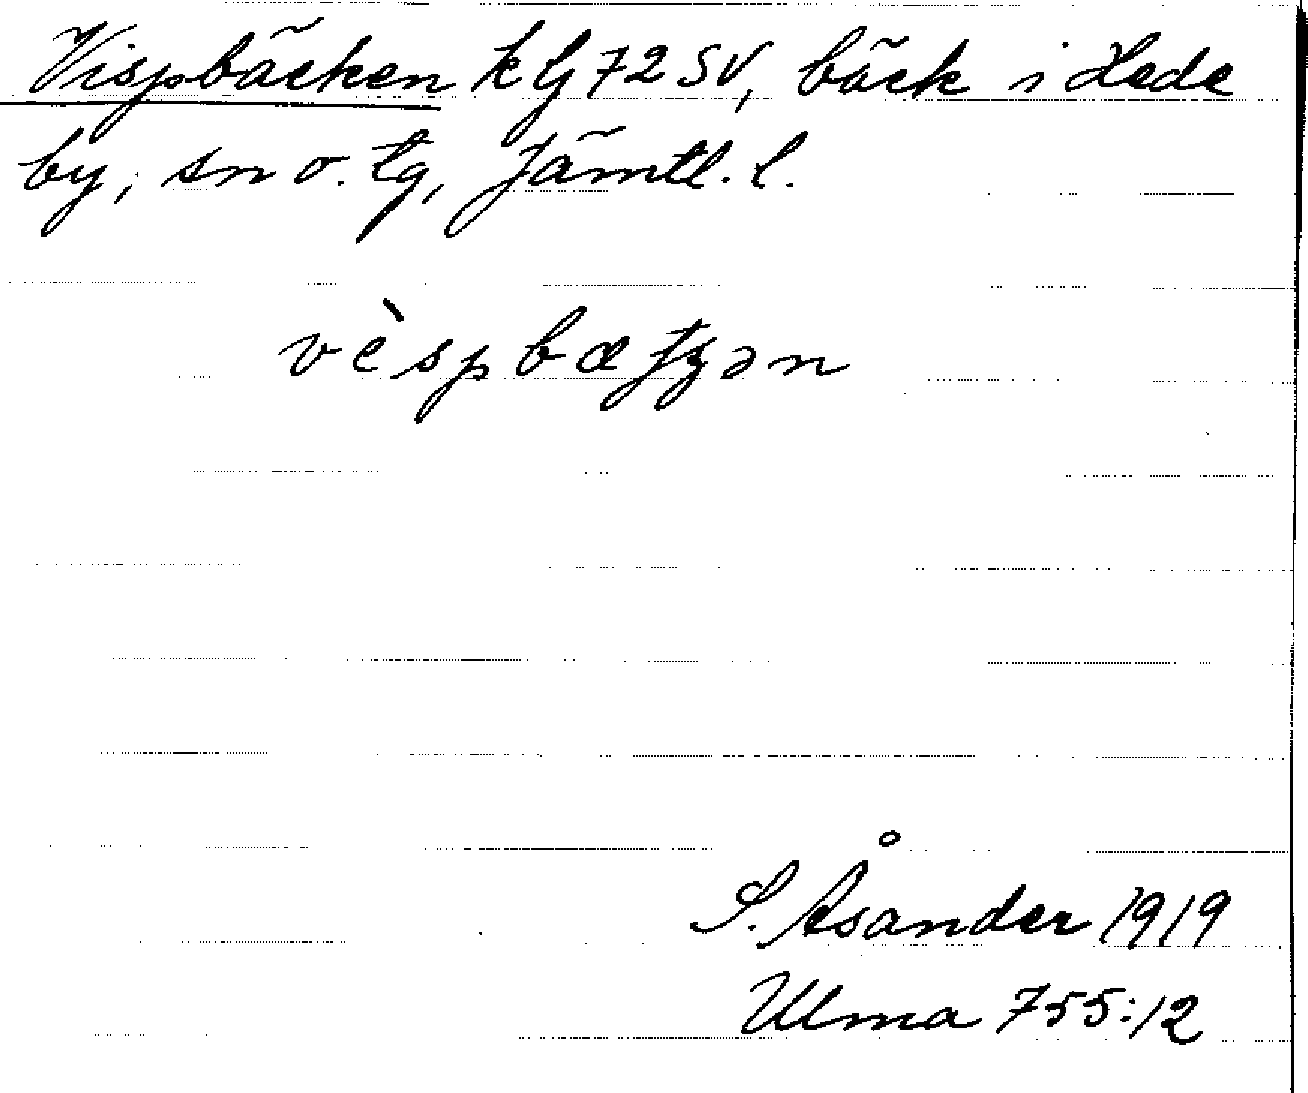 Vispbäcken k Lj 72 SV, bäck i Hede
by, sn o. tg, Jämtl. l.
vèspbæʃʒən
S. Åsander 1919
Ulma 755:12